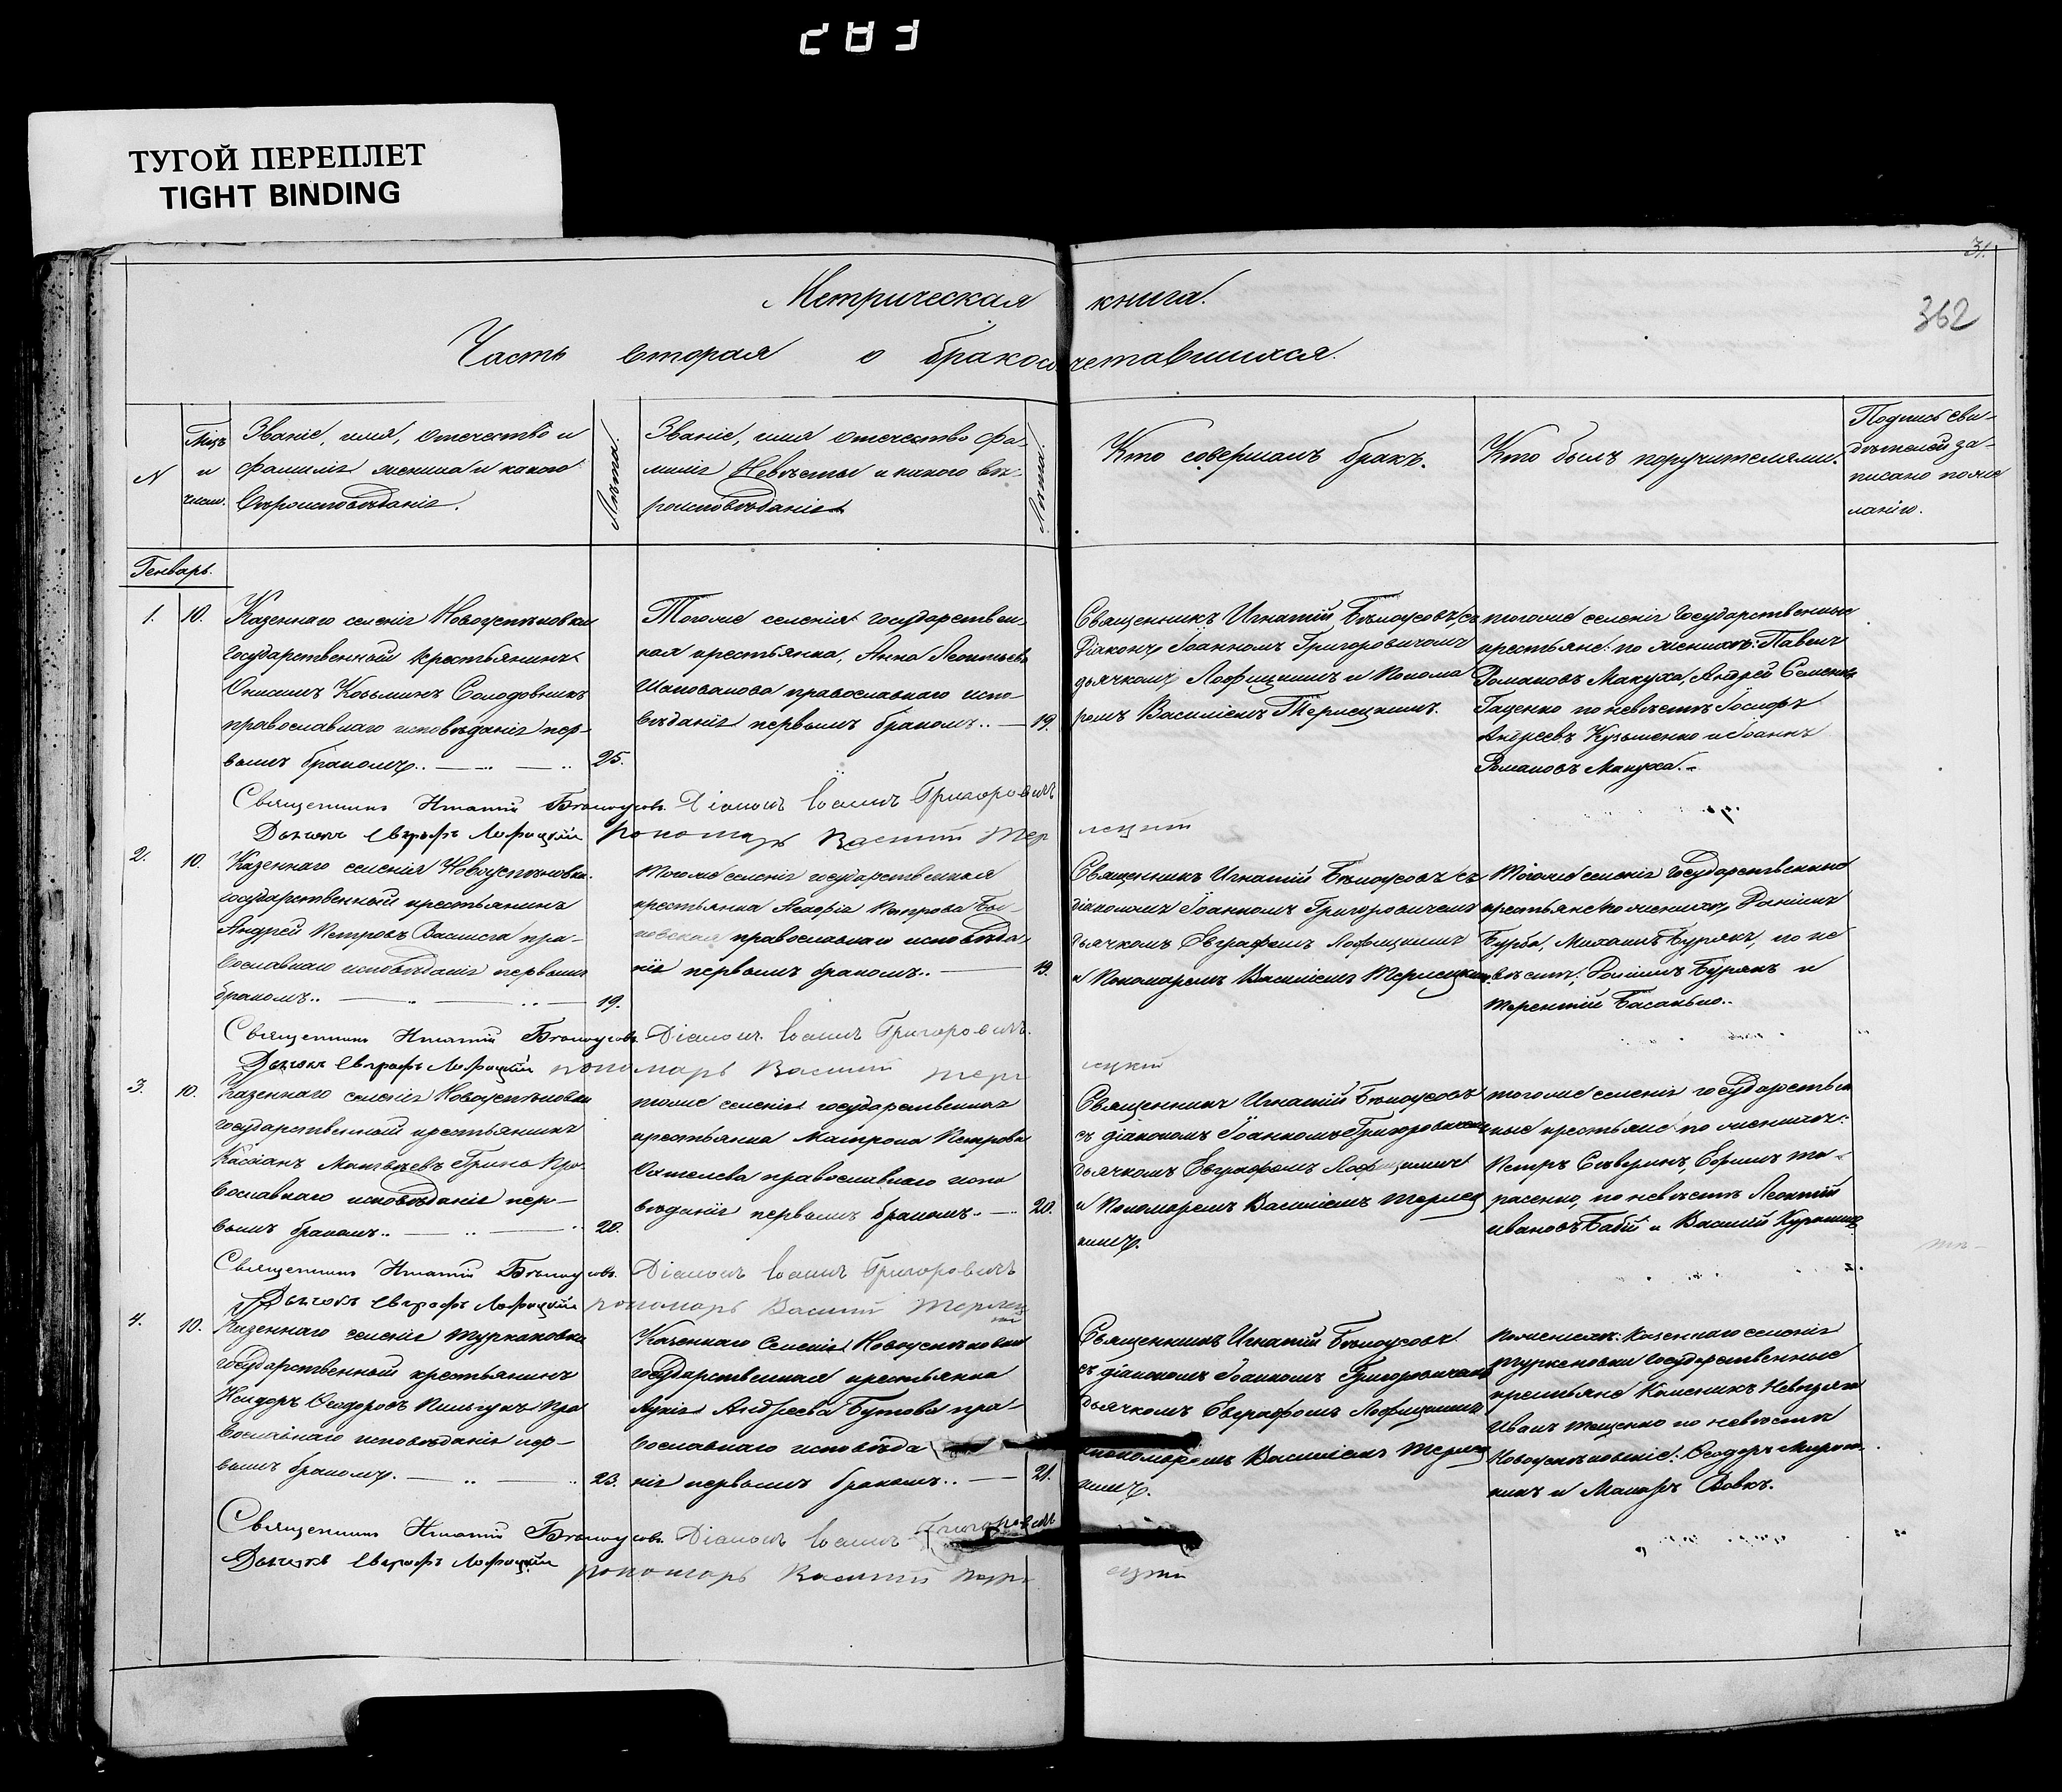 283
ТУГОЙ ПЕРЕПЛЕТ
TIGHT BINDING
31.
362
Метрическая книга.
Часть вторая о бракосочетавшихся.
N
Мцъ и число.
Званіе, имя, отечество и
фамилія жениха и какого
вѣроисповѣданія.
Лѣта.
Званіе, имя отечество фа-
милія Невѣсты и какого вѣ-
роисповѣданія
Лѣта.
Кто совершалъ бракъ.
Кто былъ поручителями.
Подпись сви-
дѣтелей за-
писано по же
ланію.
Генварь.
1. 10.
Казеннаго селенія Новоуспѣновки
государственный крестьянинъ
Онисимъ Козьминъ Солодовникъ
православнаго исповѣданія пер-
вымъ бракомъ.. 25.
Тогоже селенія государствен-
ная крестьянка, Анна Леонтьева
Шаповалова православнаго испо-
вѣданія первымъ бракомъ.. 19.
Священникъ Игнатій Бѣлоусовъ, съ
Діакономъ Іоанномъ Григоровичемъ
дьячкомъ Лофицкимъ и Понома
ремъ Василіемъ Терлецкимъ.
тогоже селенія государственные
крестьяне: по женихѣ: Павелъ
Романовъ Макуха, Андрей Семеновъ
Гаценко по невѣстѣ Іосифъ
Андреевъ Кузьменко и Іоаннъ
Романовъ Макуха.
Священникъ Игнатій Бѣлоусовъ. Діаконъ Іоаннъ Григоровичъ
Дьячокъ Евграфъ Лофицкій пономарь Василій Терлецкій
2. 10.
Казеннаго селенія Новоуспѣновки
государственный крестьянинъ
Андрей Петровъ пра-
вославнаго исповѣданія первымъ
бракомъ.. 19.
Тогоже селенія государственная
крестьянка Петрова
православнаго исповѣда-
нія первымъ бракомъ.. 19.
Священникъ Игнатій Бѣлоусовъ съ
діакономъ Іоанномъ Григоровичемъ
дьячкомъ Евграфомъ Лофицкимъ
и Пономаремъ Василіемъ Терлецкимъ.
Тогоже селенія государственные
крестьяне по женихѣ, Даніилъ
Бурба, Михаилъ Бурякъ, по не
вѣстѣ: Даніилъ Бурякъ и
Терентій
Священникъ Игнатій Бѣлоусовъ. Діаконъ Іоаннъ Григоровичъ.
Дьячокъ Евграфъ Лофицкій пономарь Василій Терлецкій
3. 10.
Казеннаго селенія Новоуспѣновки
государственный крестьянинъ
Кассіанъ Матвѣевъ Гринь пра-
вославнаго исповѣданія пер-
вымъ бракомъ.. 20.
тоже селенія государственная
крестьянка Матрона Петрова
православнаго испо
вѣданія первымъ бракомъ. 20.
Священникъ Игнатій Бѣлоусовъ
съ діакономъ Іоанномъ Григоровичемъ
дьячкомъ Евграфомъ Лофицкимъ
и Пономаремъ Василіемъ Терлец
кимъ.
тогоже селенія государствен
ные крестьяне по женихѣ:
Петръ Северинъ, Ефимъ та-
расенко, по невѣстѣ Леонтій
ивановъ Бабій и Василій
Священникъ Игнатій Бѣлоусовъ. Діаконъ Іоаннъ Григоровичъ
Дьячокъ Евграфъ Лофицкій пономарь Василій Терлецкій
4. 10.
Казеннаго селенія Туркеновки
государственный крестьянинъ
Исидоръ Ѳеодоровъ Пильгукъ пра
вославнаго исповѣданія пер-
вымъ бракомъ. 23.
Казеннаго Селенія Новоуспѣновки
государственная крестьянка
Андреева Бутова пра-
вославнаго исповѣда
нія первымъ бракомъ.. 21.
Священникъ Игнатій Бѣлоусовъ
съ діакономъ Іоанномъ Григоровичемъ
дьячкомъ Евграфомъ Лофицкимъ
и пономаремъ Василіемъ Терлец
кимъ.
По женихѣ: казеннаго селенія
Туркеновки государственные
крестьяне
Иванъ по невѣстѣ
Ѳеодоръ
и Макаръ Вовкъ.
Священникъ Игнатій Бѣлоусовъ. Діаконъ Іоаннъ Григоровичъ
Дьячокъ Евграфъ Лофицкій пономарь Василій Терлецкій